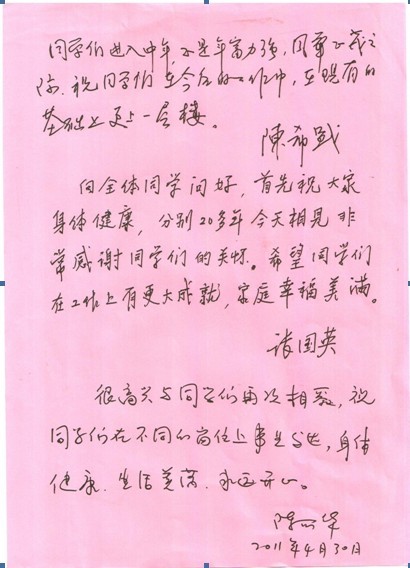 同学们进入中年,正是年富力强,风华正茂之
际,祝同学们在今后的工作中,在现有的
基础上更上一层楼。
陳希
向全体同学问好,首先祝大家
身体健康,分别20多年今天相见非
常感谢同学们的关怀。希望同学们
在工作上有更大成就,家庭幸福美满。
诸国英
很高兴与同学们再次相聚,祝
同学们在不同的岗位上事业发达,身体
健康、生活美满、永远开心。
陈 华
2011年4月30日